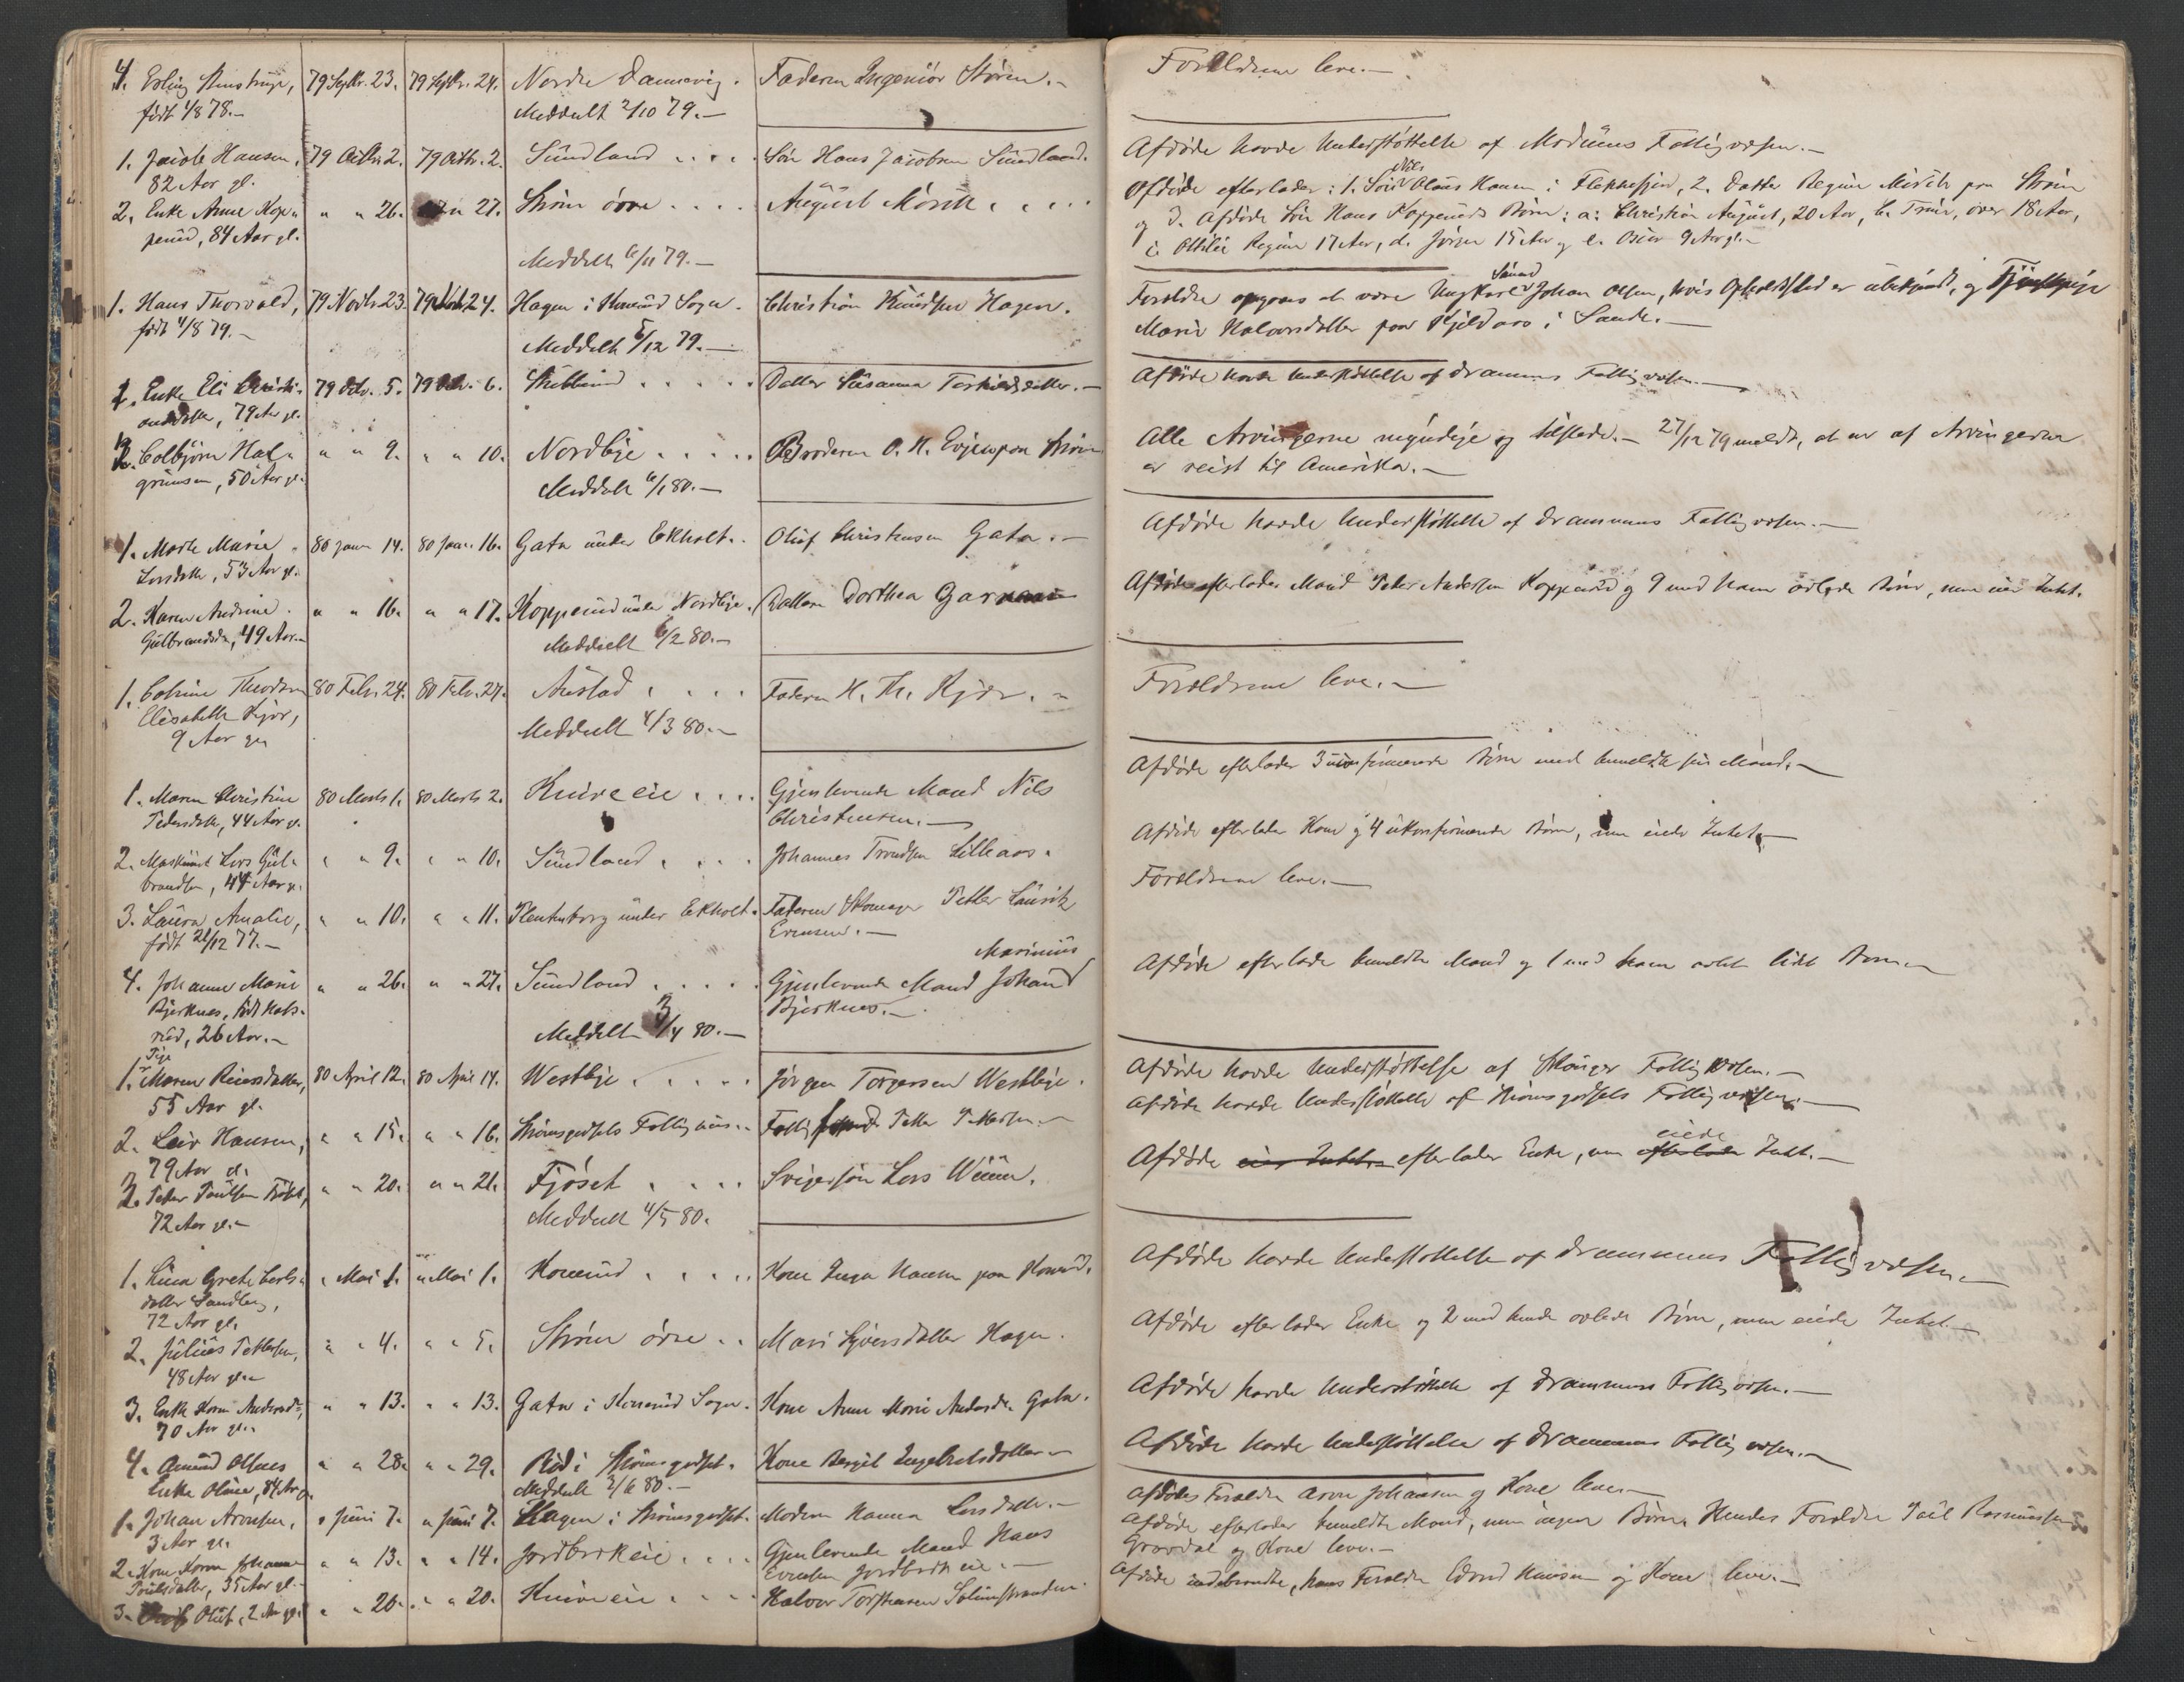 4. Erling
født 1/8 78.-
79 Septbr. 23.
79 Septbr. 24.
Nordre Damsvig.
Meddelt 2/10 79.-
Faderen Ingeniør Støren.-
Forældrene leve.-
1. Jacob Hansen,
82 Aar gl.
79 Octbr. 2.
79 Octbr. 2.
Sundland . . . .
Søn Hans Jacobsen Sundland.
Afdøde havde Understøttelse af Modums Fattigvæsen.-
2. Enke Anne Kop-
perud, 84 Aar gl.
" " 26.
" 27.
Strøm øvre . . . .
Meddelt 6/11 79.-
August Mørch . . . .
Afdøde efterlader: 1. Søn Nils Olaus Hansen i Flekkefjord, 2. Datter Regine Mørch paa Strøm
og 3. Afdøde Søn Hans Kopperuds Børn: a: Christian August, 20 Aar, b. Trine, over 18 Aar,
c. Ottilie Regine 17 Aar, d. Jørgen 15 Aar og e. Oscar 9 Aar gl.-
1. Hans Thorvald,
født 4/8 79.-
79 Novbr. 23.
79 Novbr. 24.
Hagen i Konnerud Sogn.
Meddelt 5/12 79.-
Christian Knudsen Hagen.
Forældre opgaves at være Ungkarl Johan Olsen, hvis Opholdssted er ubekjendt, og Tjenestepige
Maren Halvorsdatter paa Kjeldaas i Sande.-
1. Enke Eli Christi-
ansdatter, 79 Aar gl.
79 Decbr. 5.
79 Decbr. 6.
Stubberud . . . . .
Datter Susanna Terkildsdatter.-
Afdøde havde Understøttelse af Drammens Fattigvæsen.-
2. Colbjørn Hal-
grimsen, 50 Aar gl.
" " 9.
" " 10.
Nordbye . . . . .
Meddelt 6/1 80.-
Broderen O. H. Evju paa Strøm
Alle Arvingerne myndige og tilstede.- 27/12 79 meldt, at en af Arvingerne
er reist til Amerika.-
1. Marte Marie
Larsdatter, 53 Aar gl.
80 Janr. 14.
80 Janr. 16.
Gata under Ekholt.
Oluf Christensen Gata.-
Afdøde havde Understøttelse af Drammens Fattigvæsen.-
2. Karen Andrine
Gulbrandsdr., 49 Aar.-
" " 16.
" " 17.
Kopperud under Nordbye.
Meddelt 6/2 80.-
Datteren Dorthea
Afdøde efterlader Mand Peter Andersen Kopperud og 9 med ham avlede Børn, men eier Intet.
1. Cathrine Theodora
Elisabeth Kjær,
9 Aar gl.
80 Febr. 24.
80 Febr. 27.
Austad . . . .
Meddelt 4/3 80.-
Faderen H. Th. Kjær.-
Forældrene leve.-
1. Maren Christine
Pedersdatter, 44 Aar gl.
80 Marts 1.
80 Marts 2.
Kniveeie . . . .
Gjenlevende Mand Nils
Christensen.-
Afdøde efterlader 3 ukonfirmerede Børn med bemeldte sin Mand.-
2. Maskinist Lars Gul-
brandsen, 44 Aar gl.
" " 9.
" " 10.
Sundland . . . .
Johannes Trondsen Lilleaas.
Afdøde efterlader Kone og 4 ukonfirmerede Børn, men eiede Intet.-
3. Laura Amalie,
født 21/12 77.-
" " 10.
" " 11.
under Ekholt.
Faderen Skomager Petter Lauritz
Evensen.-
Forældrene leve.-
4. Johanne Marie
Bjerknes, født
26 Aar.-
" " 26.
" " 27.
Sundland . . . . .
Meddelt 3/4 80.-
Gjenlevende Mand Johan Marinius
Bjerknes.-
Afdøde efterlader bemeldte Mand og 1 med ham avlet lidet Barn.-
1. Pige Maren Reiersdatter,
55 Aar gl.
80 April 12.
80 April 14.
Westbye . . . . .
Jørgen Torgersen Westbye.
Afdøde havde Understøttelse af Skouger Fattigvæsen.-
2. Hansen,
79 Aar gl.
" " 15.
" " 16.
Strømsgodsets Fattighuus.-
Petter Pettersen.-
Afdøde havde Understøttelse af Strømsgodsets Fattigvæsen.-
3. Peter Paulsen
72 Aar gl.-
" " 20.
" " 21.
Fjøset . . . .
Meddelt 4/5 80.
Svigersøn Lars
Afdøde eier Intet. efterlader Enke, men eiede efterlader Intet.-
1. Grethe Carls-
datter Sandberg,
72 Aar gl.
" Mai 1.
" Mai 1.
Konnerud . . . . .
Kone Inga Hansen paa Konnerud.
Afdøde havde Understøttelse af Drammens Fattigvæsen.-
2. Julius Pettersen,
48 Aar gl.-
" " 4.
" " 5.
Strøm øvre . .
Mari Sjversdatter Hagen.
Afdøde efterlader Enke og 2 med hende avlede Børn, men eiede Intet.-
3. Enke Karen Andersdr.,
70 Aar gl..
" " 13.
" " 13.
Gata i Konnerud Sogn.
Kone Anne Marie Andersdr. Gata.
Afdøde havde Understøttelse af Drammens Fattigvæsen.-
4. Amund Olsens
Enke Oline, 84 Aar gl.
" " 28.
" " 29.
Rød i Strømsgodset.
Meddelt 2/6 80.-
Kone Bergit Engebretsdatter.-
Afdøde havde Understøttelse af Drammens Fattigvæsen.-
1. Johan Aronsen,
3 Aar gl.
" Juni 7.
" Juni 7.
Hagen i Strømsgodset.
Moderen Hanna Larsdatter.-
Afdødes Forældre Aron Johansen og Kone leve.-
2. Kone Karen Johanne
Poulsdatter, 35 Aar gl.-
" " 13.
" " 14.
Jordbrekeie . . . .
Gjenlevende Mand Hans
Evensen Jordbrekeie.-
Afdøde efterlader bemeldte Mand, men ingen Børn. Hendes Forældre Poul Rasmussen
Gravdal og Kone leve.-
3. Oluf, 2 Aar gl.
" " 20.
" " 20.
Kniveeie . . . .
Halvor Torstensen Solumstranden
Afdøde indebrændte, hans Forældre Edvard Hansen og Kone leve.-